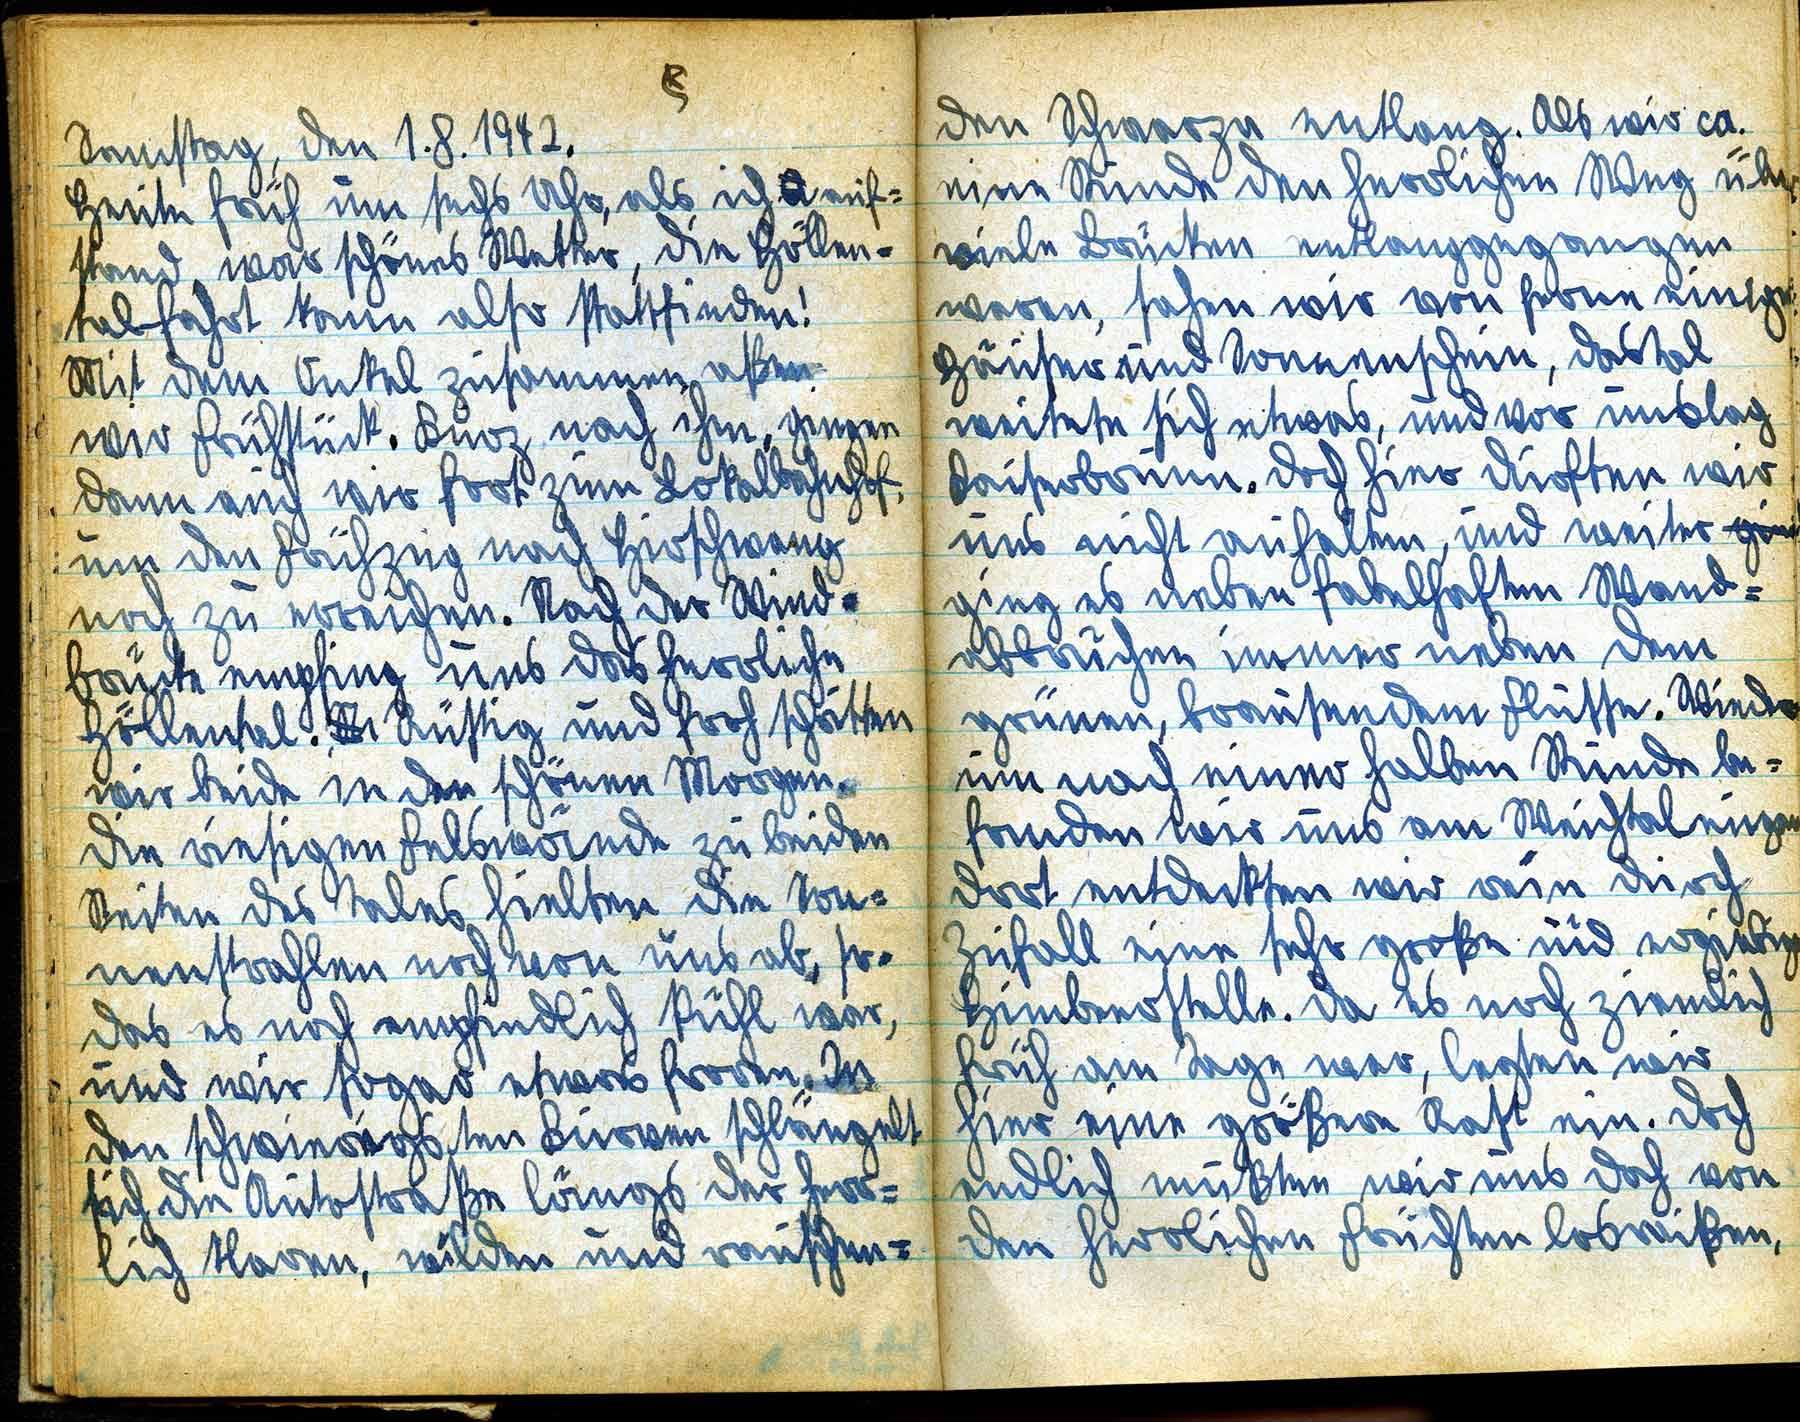 Samstag, den 1.8.1942.
Heute früh um sechs Uhr, als ich auf=
stand, war schönes Wetter, die Höllen=
talfahrt kann also stattfinden!
Mit dem Onkel zusammen aßen
wir Frühstück. Kurz nach ihm, gingen
dann auch wir fort zum Lokalbahnhof,
um den Frühzug nach Hirschwang
noch zu erreichen. Nach der Wind=
brücke empfing uns das herrliche
Höllental. Rüstig und froh schritten
wir beide in den schönen Morgen.
Die riesigen Felswände zu beiden
Seiten des Tales hielten die Son=
nenstrahlen noch von uns ab, so=
das es noch empfindlich kühl war,
und wir sogar etwas froren. In
den schwierigsten Kurven schlängelt
sich die Autostraße längs der herr=
lich klaren, wilden und rauschen=
den Schwarza entlang. Als wir ca.
eine Stunde den herrlichen Weg über
viele Brücken entlanggegangen
waren, sahen wir von ferne einige
Häuser und Sonnenschein, das Tal
weitete sich etwas, und vor uns lag
Kaiserbrunn. Doch hier durften wir
uns nicht aufhalten, und weiter
ging es neben fabelhaften Wand=
abbrüchen immer neben dem
grünen, brausendem Flusse. Wieder
um nach einer halben Stunde be=
fanden wir uns am Weichtaleingang
dort entdeckten wir rein durch
Zufall eine sehr große und ergiebige
Himbeerstelle. Da es noch ziemlich
früh am Tage war, legten wir
hier eine größere Rast ein. Doch
endlich mußten wir uns doch von
den herrlichen Früchten losreißen,